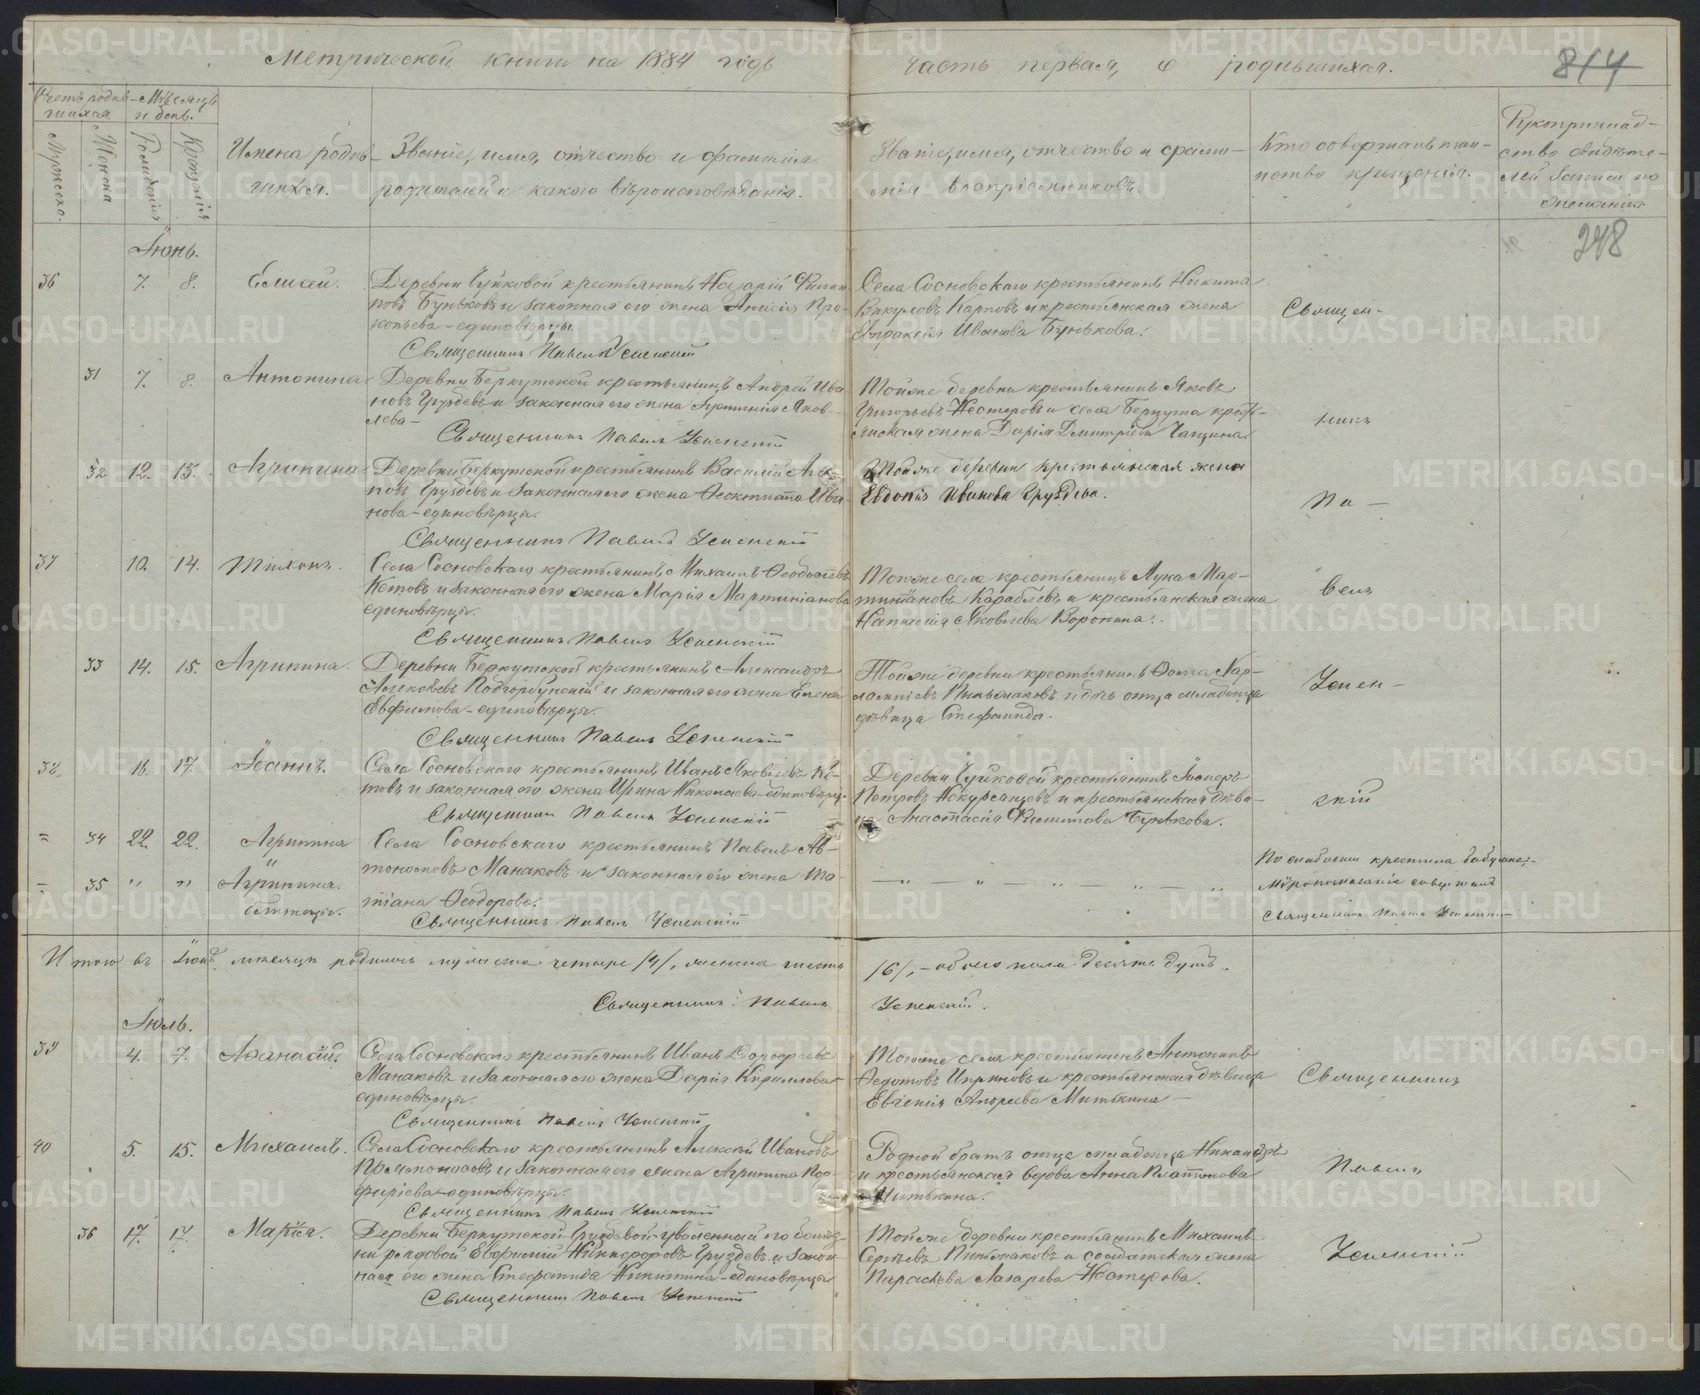 Метрической книги на 1884 годъ
часть первая, о родившихся.
814
Счетъ родив-
шихся
Мѣсяцъ
и день.
Мужеска.
Женска
Рожденія
Крещенія
Имена родив-
шихся.
Званіе, имя, отчество и фамилія
родителей и какого вѣроисповѣданія.
Званіе, имя, отчество и фами-
лія воспріемниковъ.
Кто совершалъ таин-
ство крещенія.
Рукоприклад-
ство свидѣте-
лей записи по
желанію
248
Іюнь.
36 7. 8. Елисей.
Деревни Чуйковой крестьянинъ Назарій Филип
повъ Буньковъ и законная его жена Анисія Про-
копьева - единовѣрцы.
Священникъ Павелъ Успенскій
Села Сосновскаго крестьянинъ Никита
Викуловъ Карповъ и крестьянская жена
Евпраксія Иванова Бунькова.
Священ-
31 7. 8. Антонина
Деревни Беркутской крестьянинъ Андрей Ива
новъ Груздевъ и законная его жена Яков-
лева -
Священникъ Павелъ Успенскій
Тойже деревни крестьянинъ Яковъ
Григорьевъ Нестеровъ и села Беркута кресть-
янская жена Дарія Димитріева
никъ
32 12. 13. Агрипина
Деревни Беркутской крестьянинъ Василій
повъ Груздевъ и законная его жена Феоктиста Ива
нова - единовѣрцы.
Священникъ Павелъ Успенскій
Тойже деревни крестьянская жена
Евдокія Иванова Груздева.
Па -
37 10. 14. Тихонъ.
Села Сосновскаго крестьянинъ Михаилъ Феодосѣевъ
Кетовъ и законная его жена Марія Мартиніанова
единовѣрцы.
Священникъ Павелъ Успенскій
Тогоже села крестьянинъ Лука Мар-
тиніановъ Караблевъ и крестьянская жена
Яковлева Воронина.
велъ
33 14. 15. Агрипина.
Деревни Беркутской крестьянинъ Александръ
Алексѣевъ Подгорбунскій и законная его жена Елена
Евфимова - единовѣрцы.
Священникъ Павелъ Успенскій
Тойже деревни крестьянинъ Фома
Пильщиковъ и дочь отца младенца
дѣвица Стефанида.
Успен -
38. 16. 17. Іоаннъ.
Села Сосновскаго крестьянинъ Иванъ Яковлевъ Ке-
товъ и законная его жена Ирина Николаева - единовѣрцы.
Священникъ Павелъ Успенскій
Деревни Чуйковой крестьянинъ Іосифъ
Петровъ и крестьянская дѣви-
ца Анастасія Филиппова Бунькова.
скій
= 34 22. 22. Агрипина
и
= 35 " " Агрипина.
близнецы.
Села Сосновскаго крестьянинъ Павелъ Ав-
тономовъ Манаковъ и законная его жена Та-
тіана Феодорова.
Священникъ Павелъ Успенскій
— " — " — " — " — "
По слабости крестила бабушка;
Мѵропомазаніе совершалъ
Священникъ Павелъ Успенскій
Итого въ Іюнѣ мѣсяцѣ родилось мужеска четыре /4/, женска шесть
/6/, - обоего пола десять душъ.
Священникъ Павелъ
Успенскій.
Іюль.
39 4. 7. Афанасій.
Села Сосновскаго крестьянинъ Иванъ Дорофеевъ
Манаковъ и законная его жена Дарія Кириллова
единовѣрцы.
Священникъ Павелъ Успенскій
Тогоже села крестьянинъ Антонинъ
Федотовъ и крестьянская дѣвица
Евгенія Андреева Митькина -
Священникъ
40 5. 15. Михаилъ.
Села Сосновскаго крестьянинъ Алексѣй Ивановъ
и законная его жена Агрипина Пор-
фиріева - единовѣрцы.
Священникъ Павелъ Успенскій
Родной братъ отца младенца Никандръ
и крестьянская вдова Анна Платонова
Митькина.
Павелъ
36 17. 17. Марія.
Деревни Беркутской уволенный по болѣз-
ни рядовой Евфимій Никифоровъ Груздевъ и закон
ная его жена Стефанида Никитина - единовѣрцы
Священникъ Павелъ Успенскій
Тойже деревни крестьянинъ Михаилъ
Сергѣевъ Пильщиковъ и солдатская жена
Параскева Лазарева Нестерова.
Успенскій
METRIKI.GASO-URAL.RU